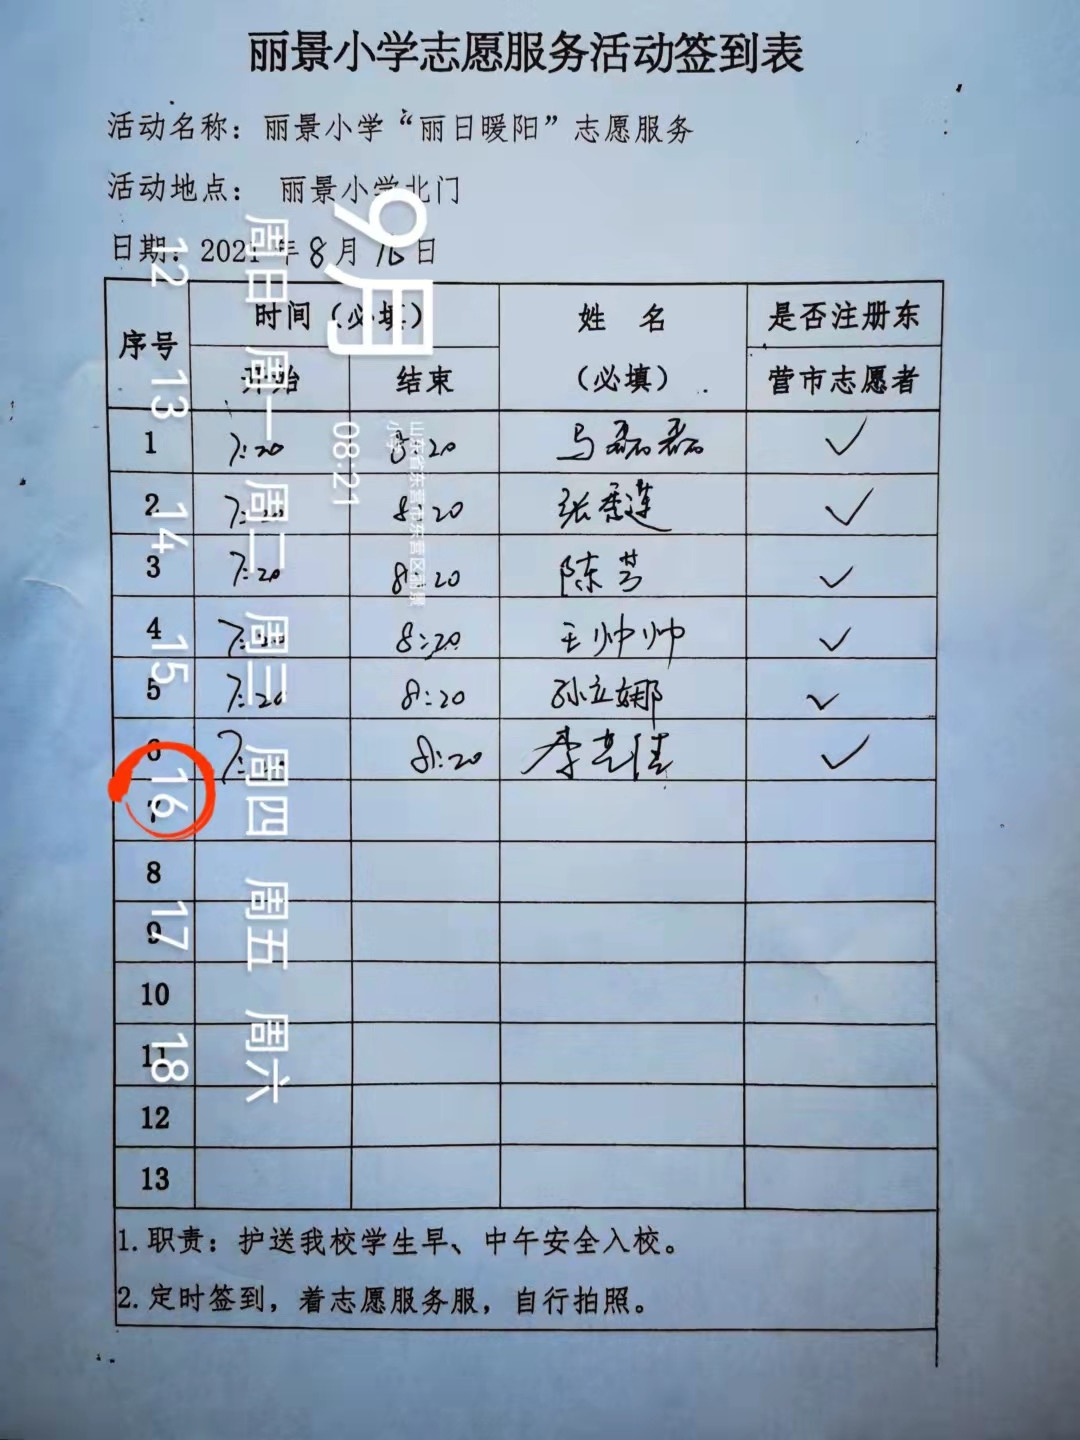 丽景小学志愿服务活动签到表
活动名称：丽景小学“丽日暖阳”志愿服务
活动地点： 丽景小学北门
日期：2021年8月16日
序号 时间（必填） 姓 名 是否注册东
开始 结束 （必填） 营市志愿者
1 7:20 8:20 马磊磊 ✓
2 7:20 8:20 张秀莲 ✓
3 7:20 8:20 陈芳 ✓
4 7:20 8:20 王帅帅 ✓
5 7:20 8:20 孙立娜 ✓
6 7: 8:20 李 佳 ✓
7
8
9
10
11
12
13
1.职责：护送我校学生早、中午安全入校。
2.定时签到，着志愿服务服，自行拍照。
9月
08:21
山东省东营市东营区丽景
小学
周日 周一 周二 周三 周四 周五 周六
12 13 14 15 16 17 18